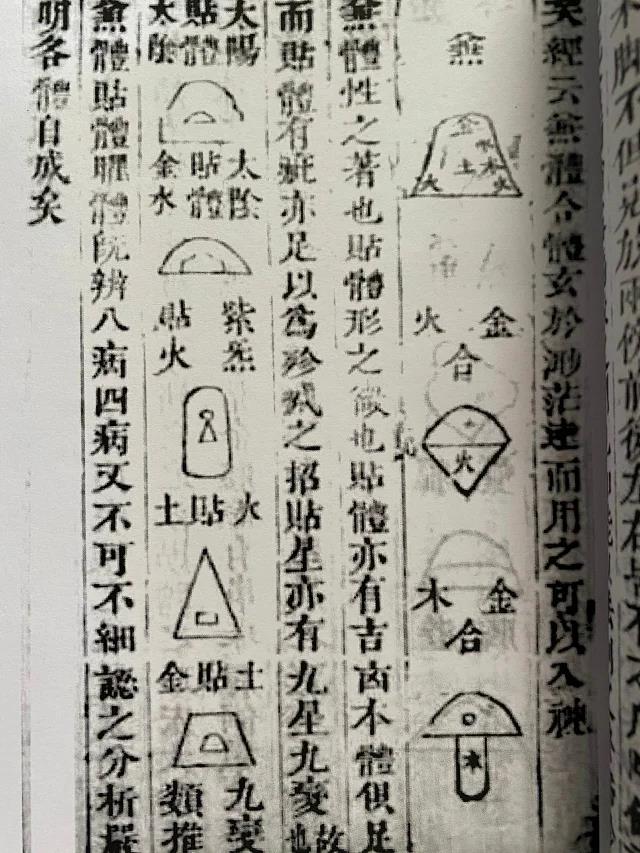 脚不但
放兩傍前後左右
矣經云兼體合體玄於渺茫建而用之可以入神
兼
金
水木
土
火 火
金火合
火
金木合
木
兼體性之著也貼體形之微也貼體亦有吉凶本體俱足
而貼體有疵亦足以為殄滅之招貼星亦有九星九變故也
太陽貼體太陰
太陰貼體金水
紫炁貼火
火貼土
土貼金
九變類推
兼體貼體曜體既辨八病四病又不可不細認之分析嚴
明各體自成矣